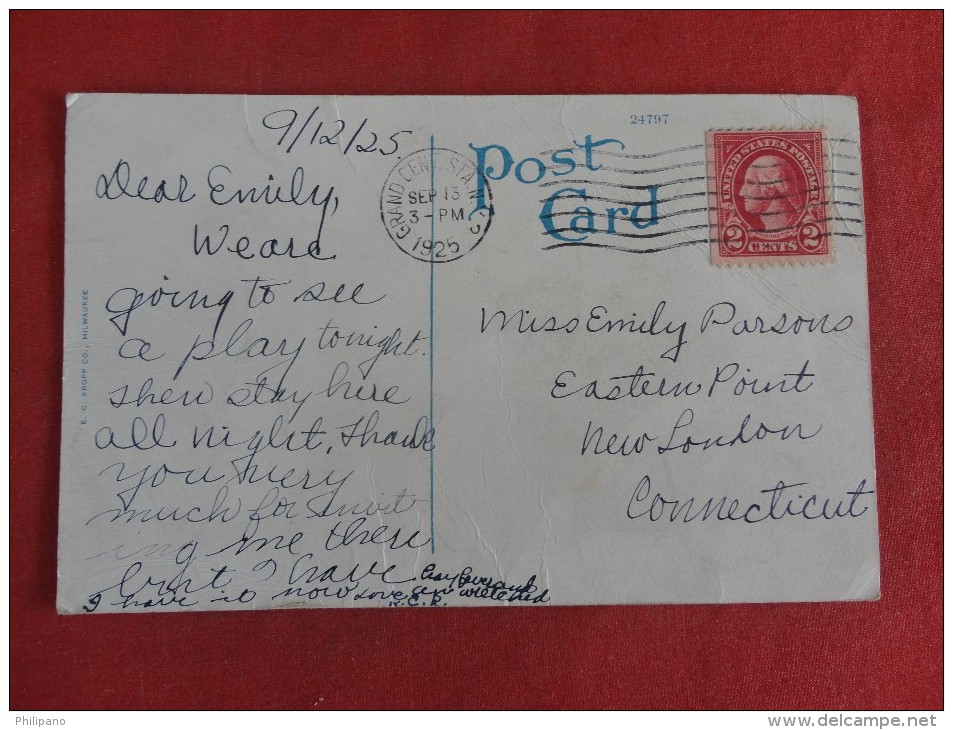 9/12/25
Dear Emily,
We are
going to see
a play tonight.
then stay here
all night, thank
you very
much for invit
ing me there
but I have hay fever and
I have it now Love am wretched
R.C.R.
E. C. KROPP CO., MILWAUKEE
24797
Post
Card
GRAND CENT. STA. N.Y.
SEP 13
3-PM
1925
UNITED STATES POSTAGE
2 CENTS 2
Miss Emily Parsons
Eastern Point
New London
Connecticut
Philipano
www.delcampe.net